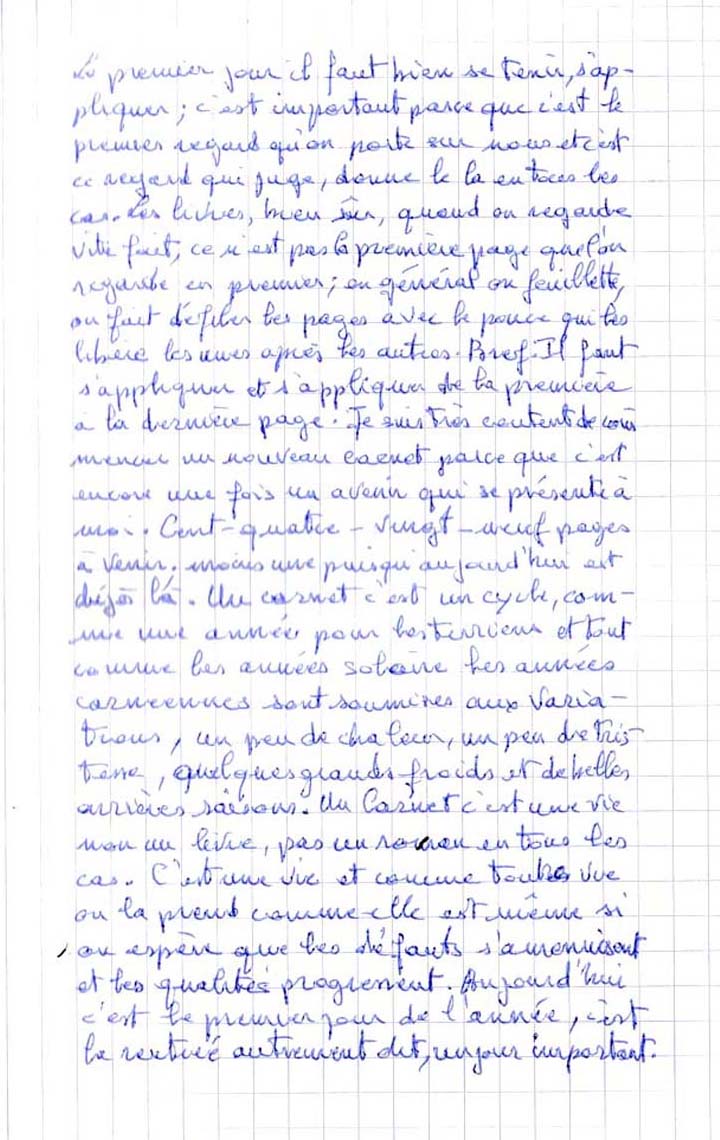 Le premier jour il faut bien se tenir, s'ap-
pliquer ; c'est important parce que c'est le
premier regard qu'on porte sur nous et c'est
ce regard qui juge, donne le la en tous les
cas. Les livres, bien sûr, quand on regarde
vite fait, ce n'est pas la première page que l'on
regarde en premier ; en général on feuillette,
on fait défiler les pages avec le pouce qui les
libère les unes après les autres. Bref. Il faut
s'appliquer et s'appliquer de la première
à la dernière page. Je suis très content de com
mencer un nouveau carnet parce que c'est
encore une fois un avenir qui se présente à
moi. Cent-quatre-vingt-neuf pages
à venir. moins une puisqu'aujourd'hui est
déjà là. Un carnet c'est un cycle, com-
me une année pour les terriens et tout
comme les années solaire les années
carnéennes sont soumises aux varia-
tions, un peu de chaleur, un peu de tris-
tesse, quelques grands froids et de belles
arrières saisons. Un Carnet c'est une vie
non un livre, pas un roman en tous les
cas. C'est une vie et comme toutes vie
on la prend comme elle est même si
on espère que les défauts s'amenuisent
et les qualités progressent. Aujourd'hui
c'est le premier jour de l'année, c'est
la rentrée autrement dit, un jour important.